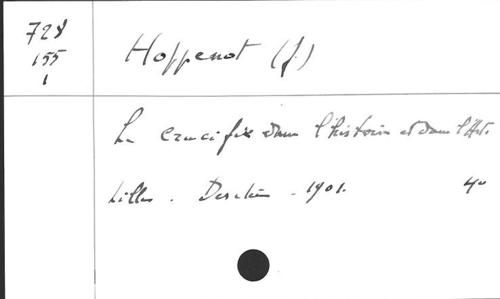 728
155
1
Hoppenot (J.)
Le crucifix dans l'histoire et dans l'Art.
Lille. Desclée. 1901. 4°